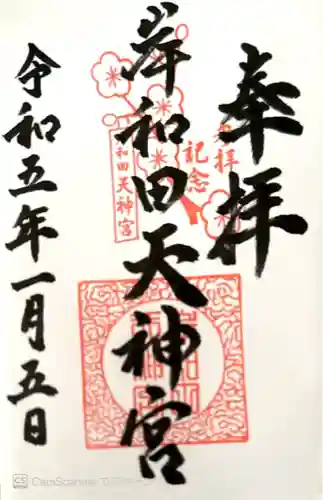 奉拝
参拝
記念
岸和田天神宮
岸和田天神宮
令和五年一月五日
CS CamScanner